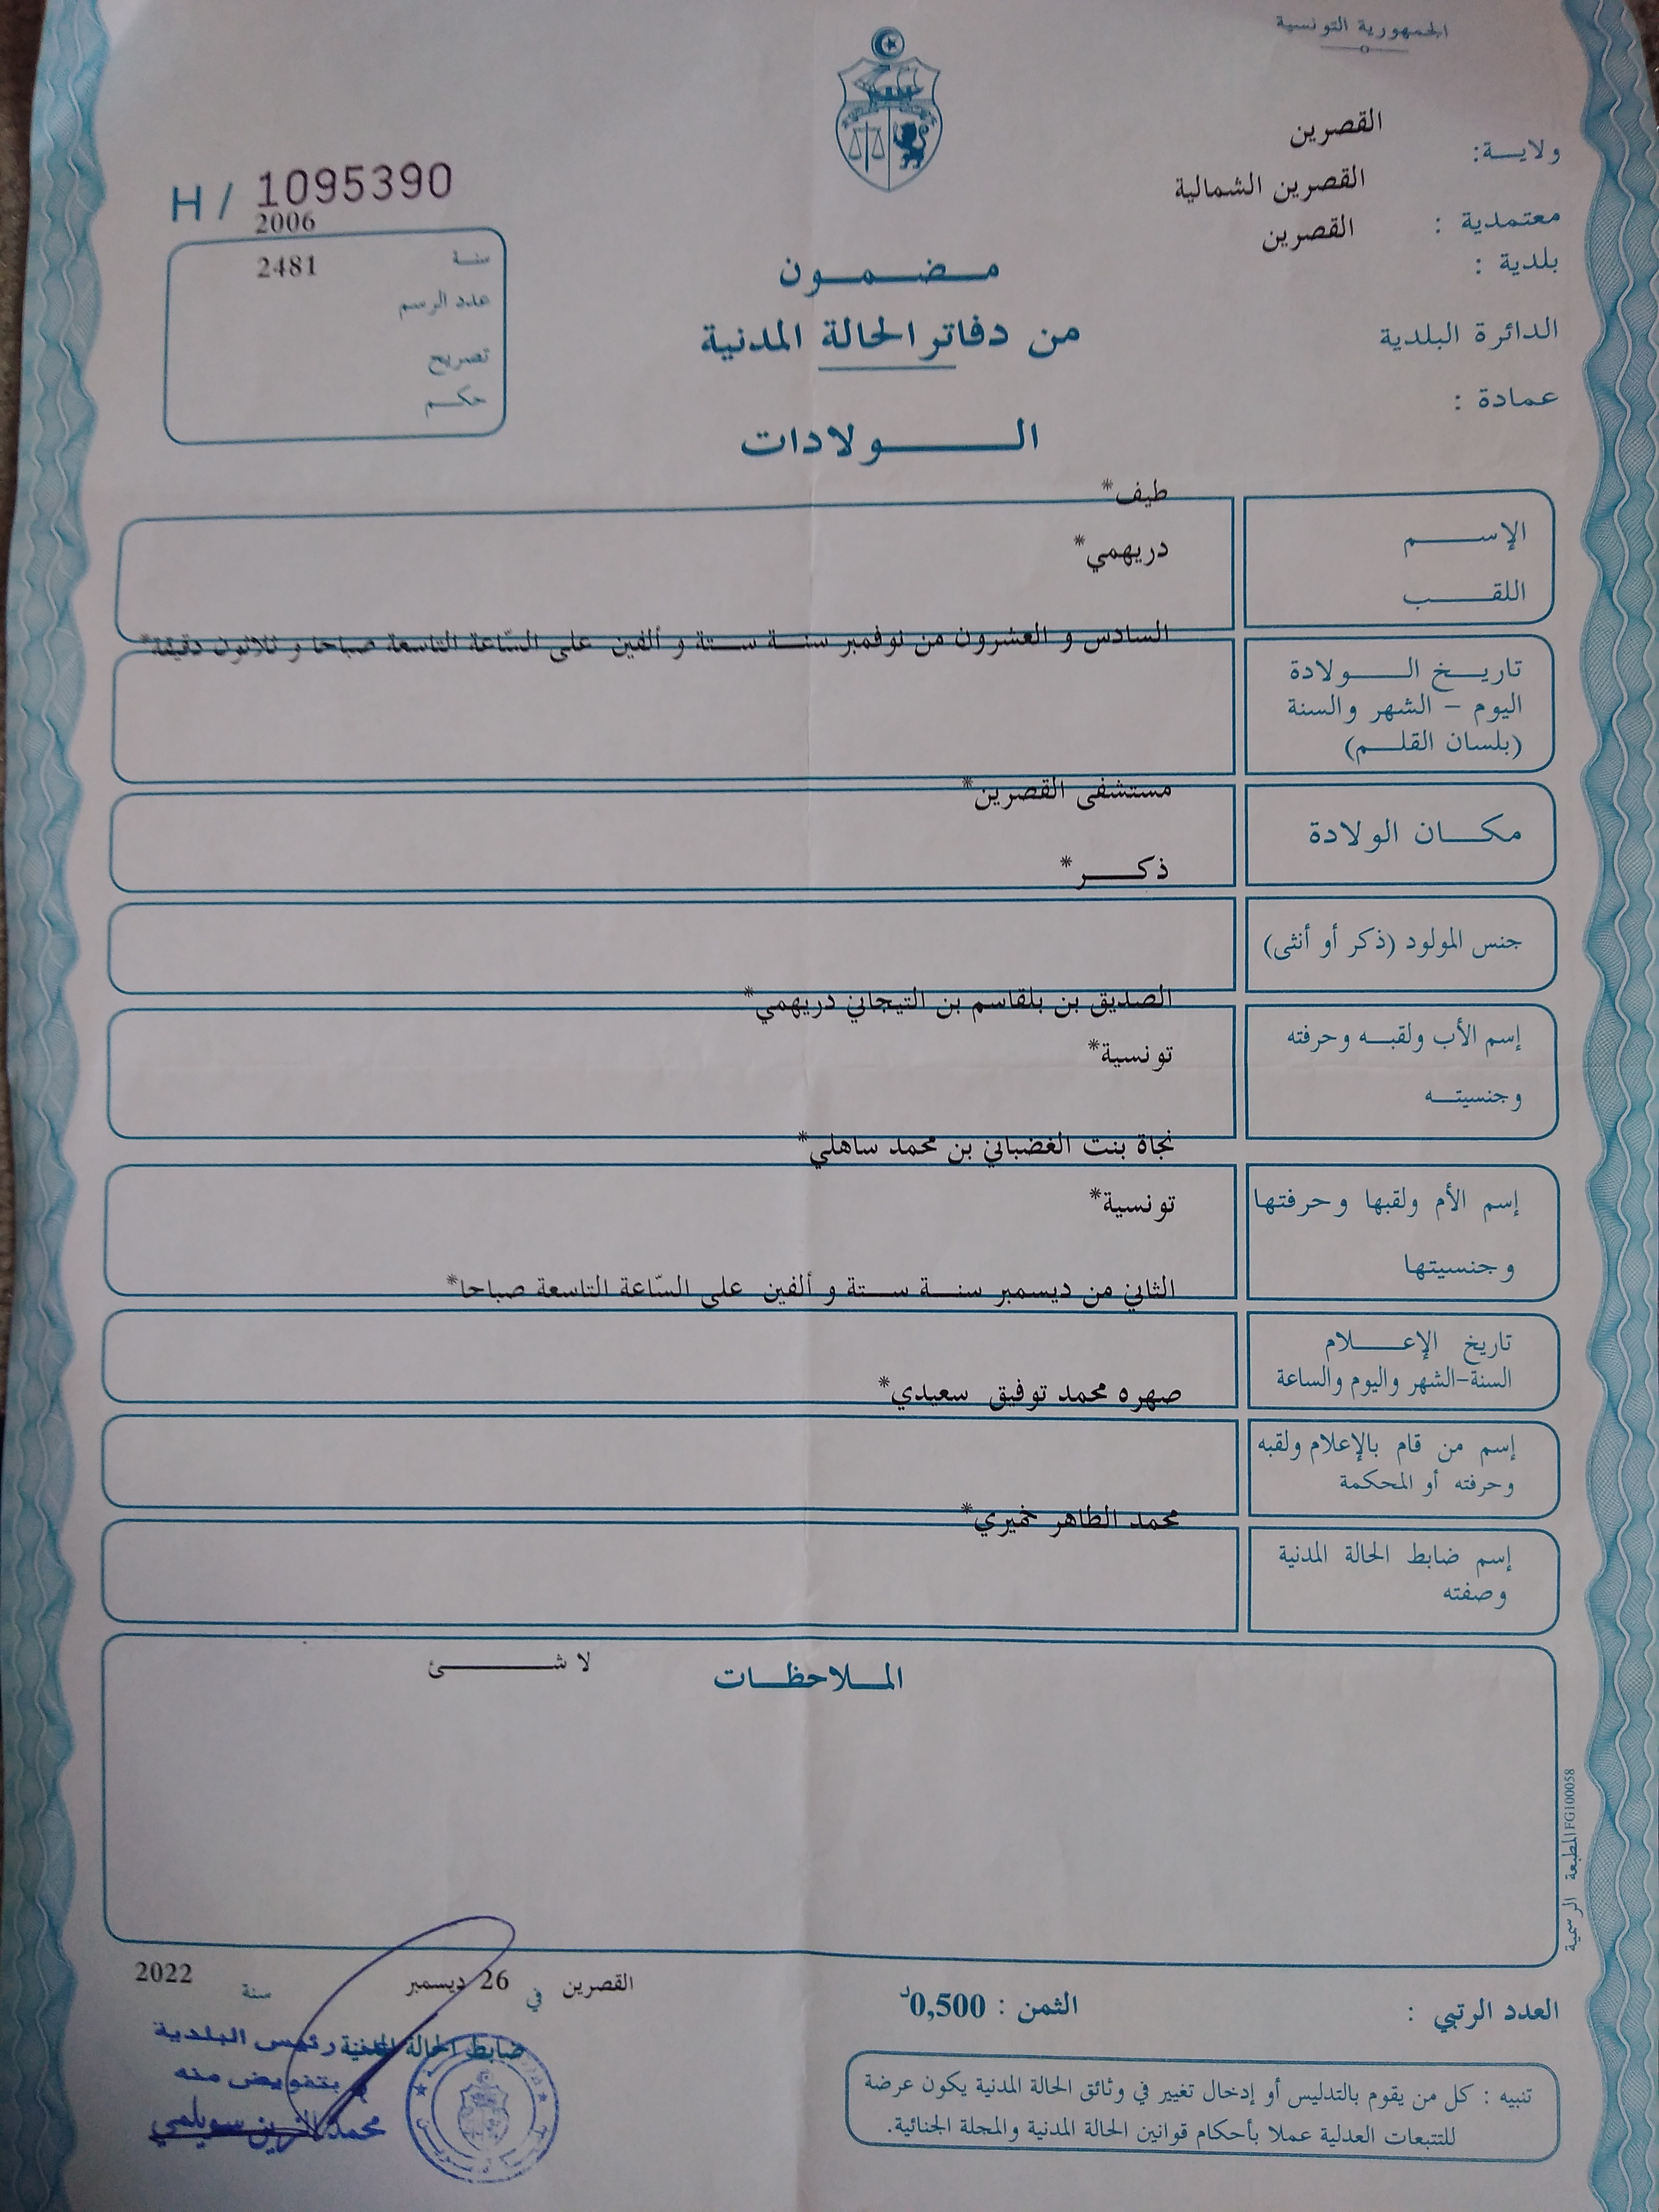 الجمهورية التونسية
ولايـــة: القصرين
معتمدية : القصرين الشمالية
بلدية : القصرين
الدائرة البلدية
عمادة :
H / 1095390
2006
سنة
2481
عدد الرسم
تصريح
حكم
مضمون
من دفاتر الحالة المدنية
الولادات
الإسم
طيف*
اللقب
دريهمي*
تاريخ الولادة
اليوم - الشهر والسنة
(بلسان القلم)
السادس و العشرون من نوفمبر سنة ستة و ألفين على السّاعة التاسعة صباحا و ثلاثون دقيقة*
مكان الولادة
مستشفى القصرين*
جنس المولود (ذكر أو أنثى)
ذكر*
إسم الأب ولقبه وحرفته
وجنسيته
الصديق بن بلقاسم بن التيجاني دريهمي*
تونسية*
إسم الأم ولقبها وحرفتها
وجنسيتها
نجاة بنت الغضباني بن محمد ساهلي*
تونسية*
تاريخ الإعلام
السنة-الشهر واليوم والساعة
الثاني من ديسمبر سنة ستة و ألفين على السّاعة التاسعة صباحا*
إسم من قام بالإعلام ولقبه
وحرفته أو المحكمة
صهره محمد توفيق سعيدي*
إسم ضابط الحالة المدنية
وصفته
محمد الطاهر خميري*
الملاحظات
لا شئ
المطبعة الرسمية FG100058
القصرين في 26 ديسمبر سنة 2022
العدد الرتبي :
الثمن : 0,500د
ضابط الحالة المدنية
رئيس البلدية
و بتفويض منه
محمد الزين سويلمي
تنبيه : كل من يقوم بالتدليس أو إدخال تغيير في وثائق الحالة المدنية يكون عرضة
للتتبعات العدلية عملا بأحكام قوانين الحالة المدنية والمجلة الجنائية.